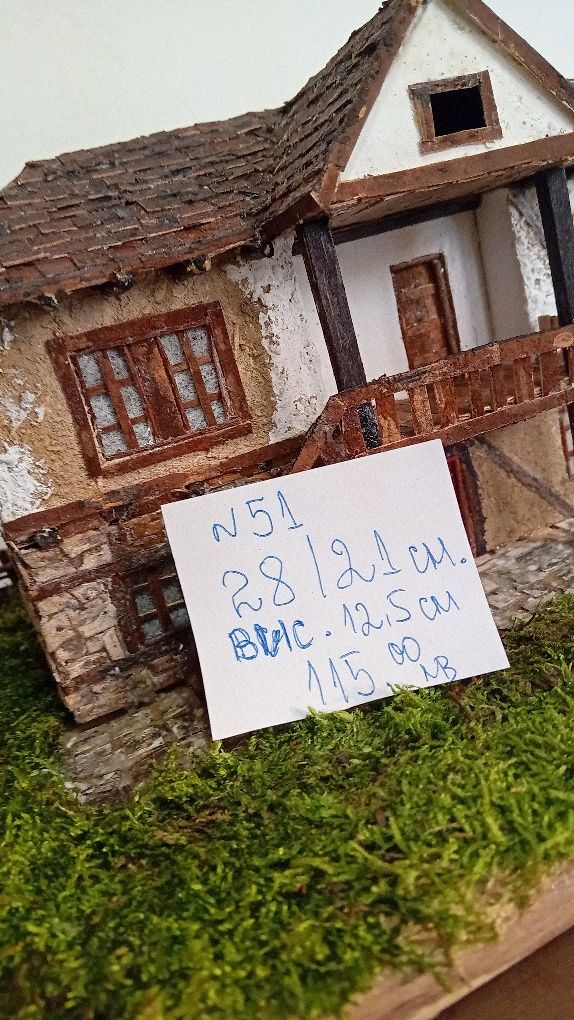 N 51
28/21 см.
вис. 12,5 см
115.00 лв